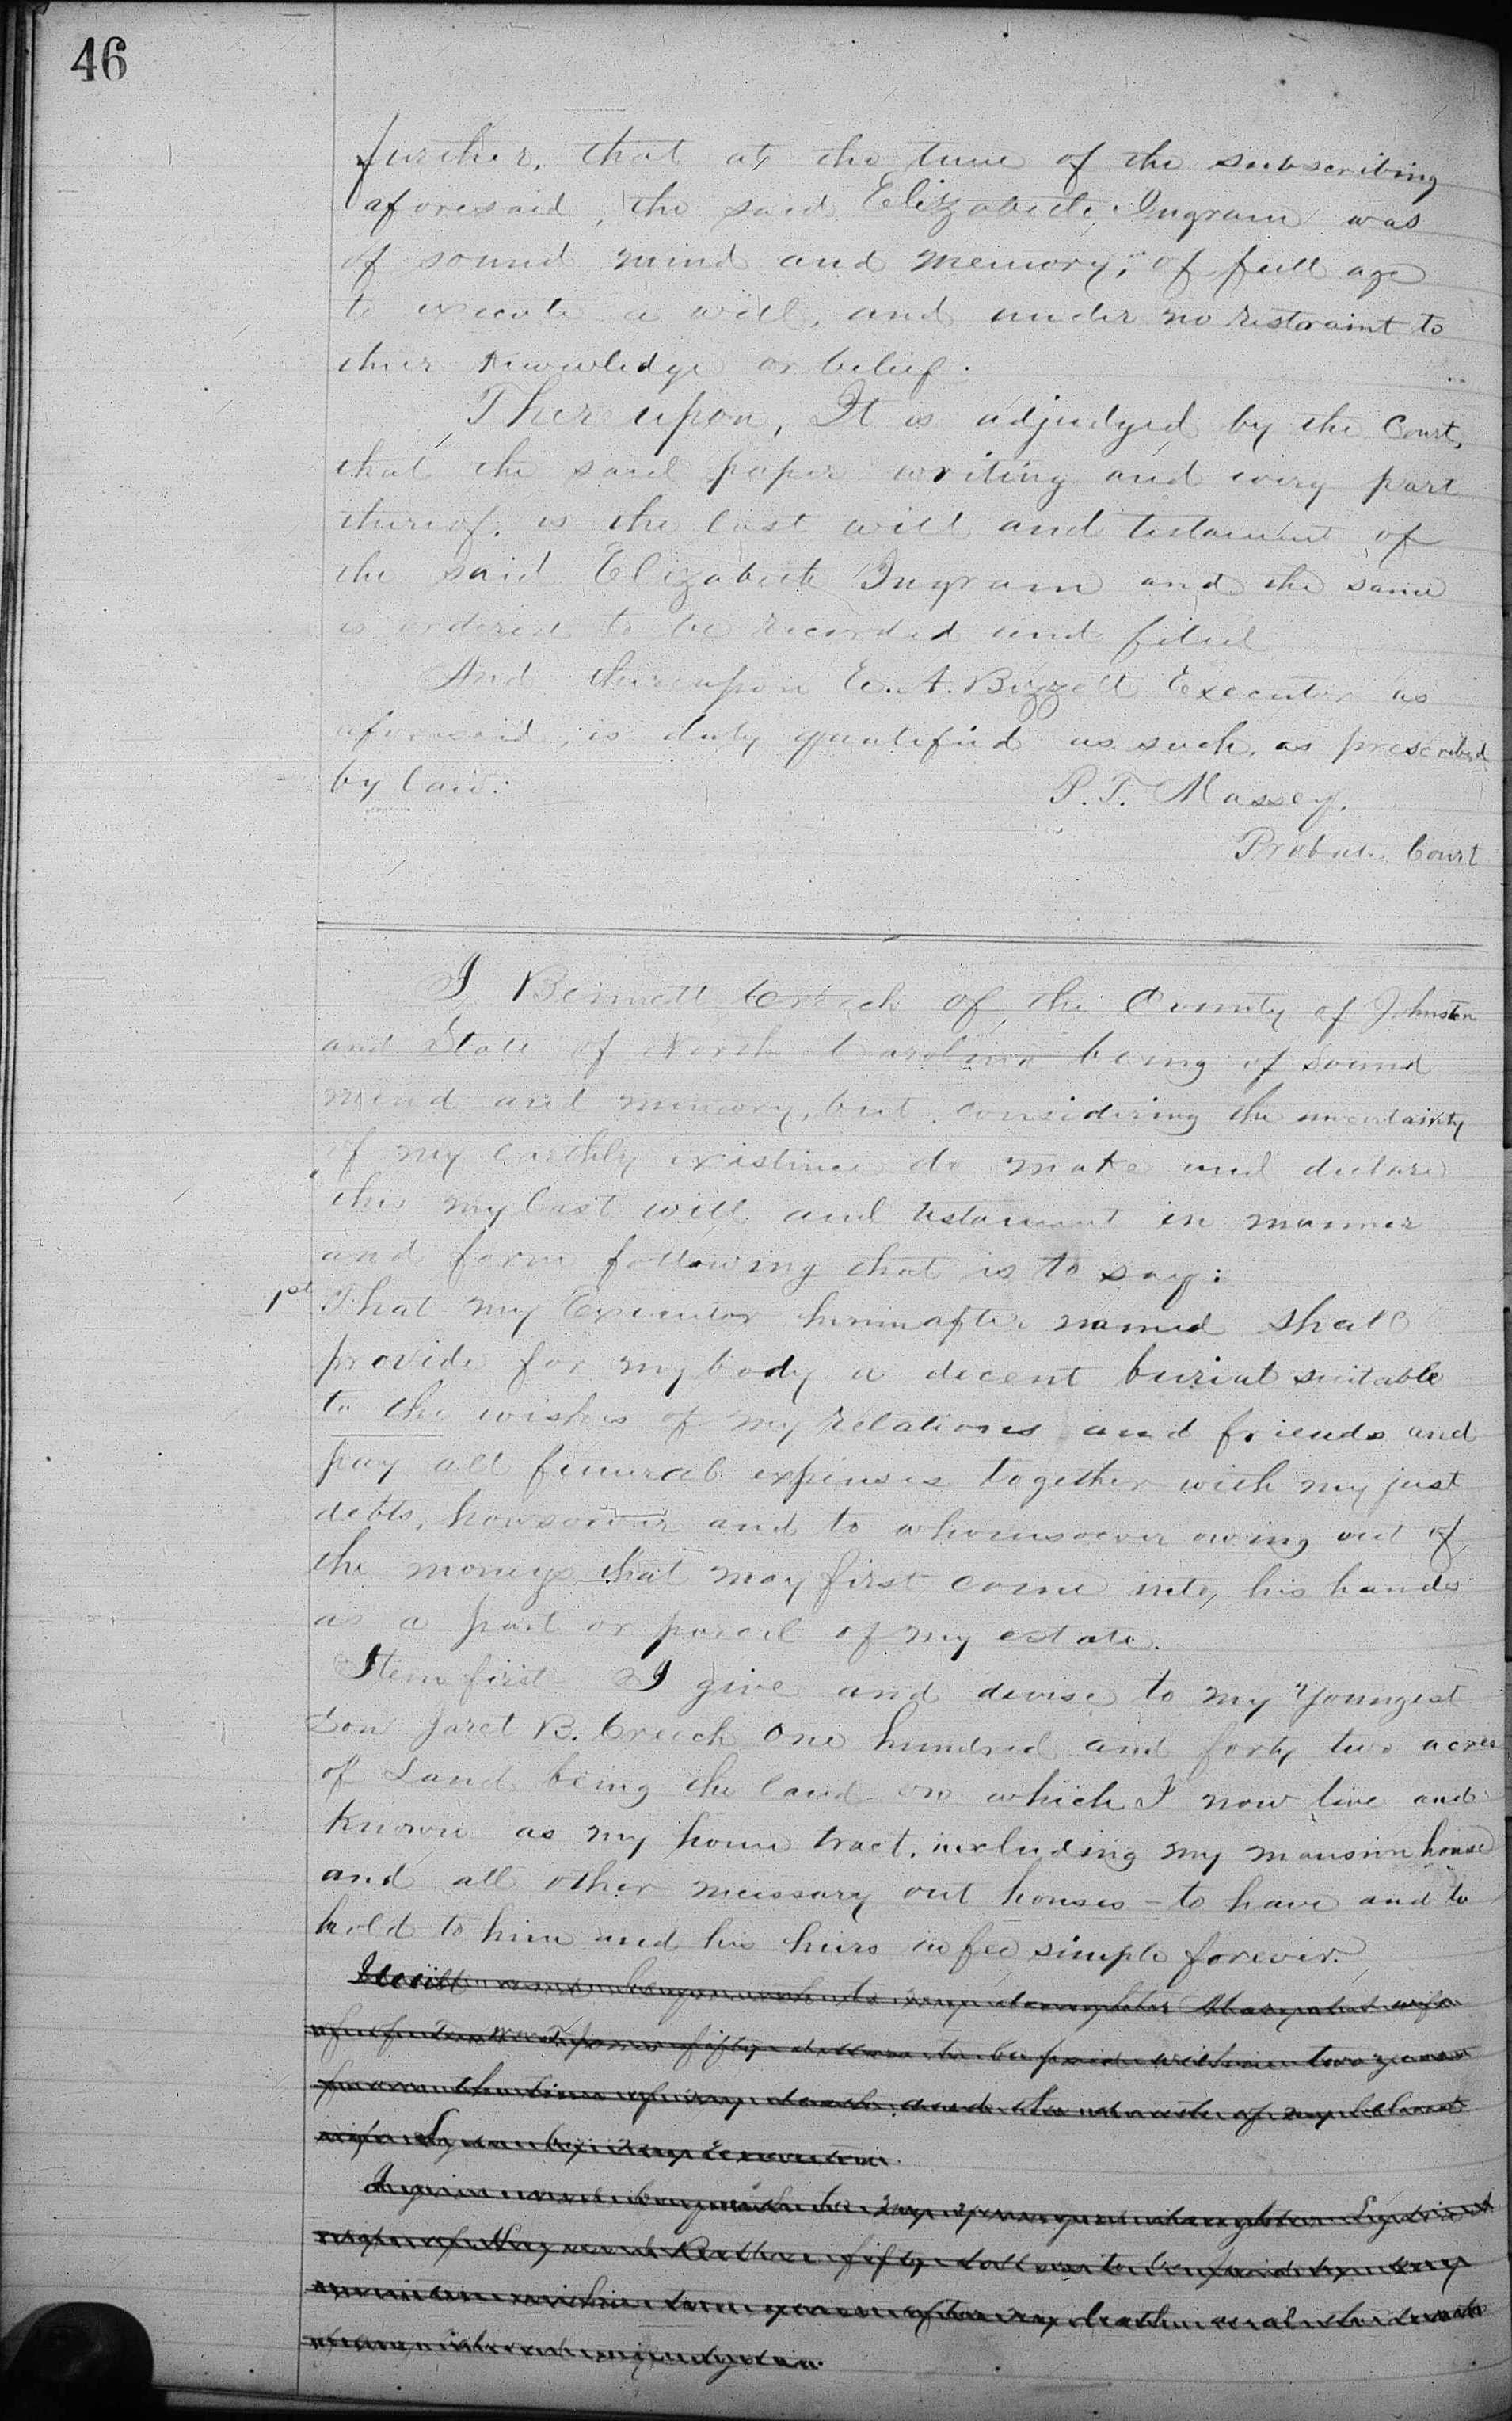 46
further, that at the time of the subscribing
aforesaid, the said Elizabeth Ingram was
of sound mind and memory, of full age
to execute a will, and under no restraint to
their knowledge or belief.
Thereupon, It is adjudged by the Court,
that the said paper writing and every part
thereof, is the last will and testament of
the said Elizabeth Ingram and the same
is ordered to be recorded and filed
And thereupon E. A. Bizzell Executor as
aforesaid, is duly qualified as such, as prescribed
by law.
P. T. Massey.
Probate Court
I Bennett Creech of the County of Johnston
and State of North Carolina being of sound
mind and memory, but considering the uncertainty
of my earthly existence do make and declare
this my last will and testament in manner
and form following that is to say:
1st That my Executor hereinafter named shall
provide for my body a decent burial suitable
to the wishes of my relations and friends and
pay all funeral expenses together with my just
debts, howsoever and to whomsoever owing out of
the moneys that may first come into his hands
as a part or parcel of my estate.
Item first I give and devise to my youngest
son Jaret B. Creech One hundred and forty two acres
of Land being the land on which I now live and
known as my home tract, including my mansion house
and all other necessary out houses - to have and to
hold to him and his heirs in fee simple forever.
I will and bequeath to my daughter wife
fifty dollars to be paid within two years
from the time of my death and the death of my beloved
wife by my Executor.
I give and bequeath to my youngest daughter
wife of fifty dollars to be paid by my
within two years after my death and the death